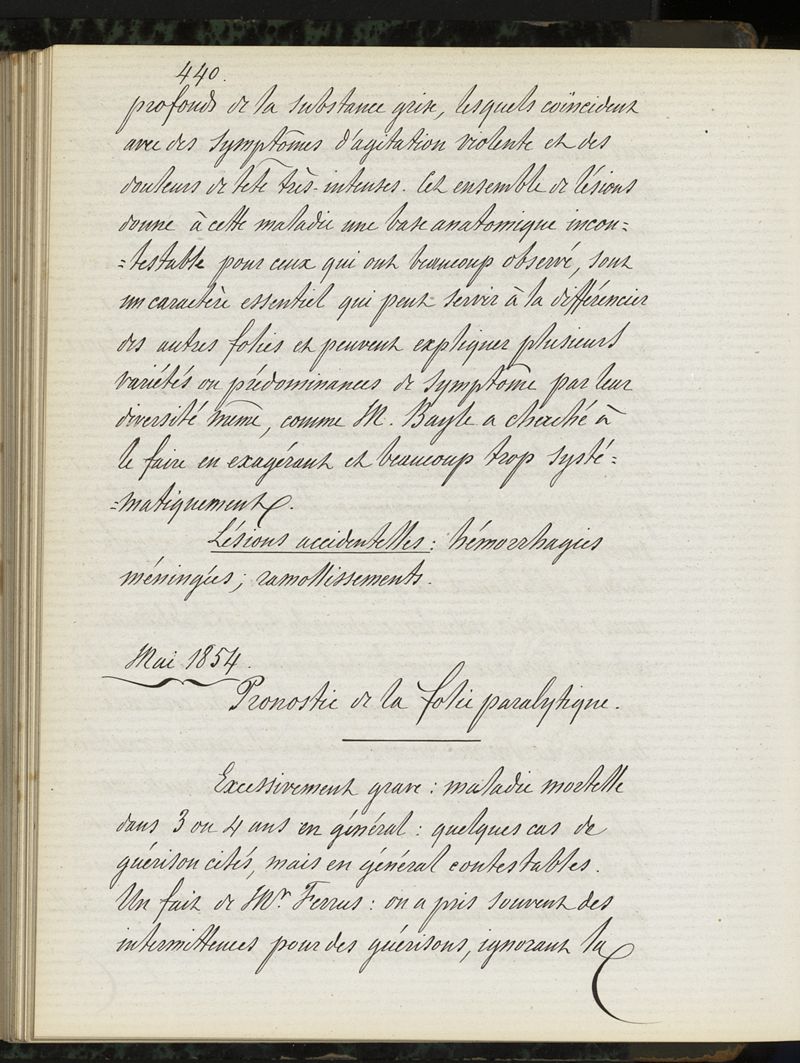 440.
profonds de la substance grise, lesquels coïncident
avec des symptômes d'agitation violente et des
douleurs de tête très-intenses. Cet ensemble de lésions
donne à cette maladie une base anatomique incon=
=testable pour ceux qui ont beaucoup observé, sont
un caractère essentiel qui peut servir à la différencier
des autres folies et peuvent expliquer plusieurs
variétés ou prédominances de symptôme par leur
diversité même, comme M. Bayle a cherché à
le faire en exagérant et beaucoup trop systé=
=matiquement.
Lésions accidentelles : hémorrhagies
méningées ; ramollissements.
Mai 1854.
Pronostic de la folie paralytique.
Excessivement grave : maladie mortelle
dans 3 ou 4 ans en général : quelques cas de
guérison cités, mais en général contestables.
Un fait de Mr. Ferrus : on a pris souvent des
intermittences pour des guérisons, ignorant la